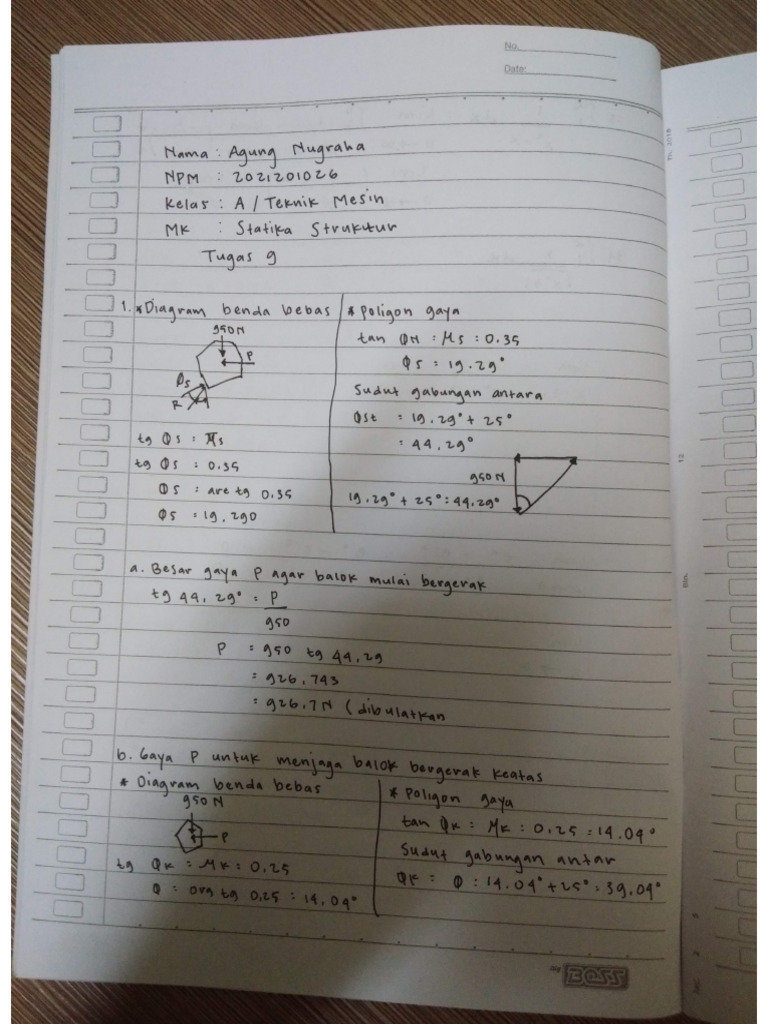 No.
Date:
Nama : Agung Nugraha
NPM : 2021201026
Kelas : A / Teknik Mesin
MK : Statika Struktur
Tugas 9
1. * Diagram benda bebas
950 N
P
Øs
R
tg Øs = Ms
tg Øs = 0.35
Øs = are tg 0.35
Øs = 19.290
* Poligon gaya
tan ØH = Ms = 0.35
Øs = 19.29°
Sudut gabungan antara
Øst = 19.29° + 25°
= 44.29°
950 N
19.29° + 25° = 44.29°
a. Besar gaya P agar balok mulai bergerak
tg 44,29° = P
950
P = 950 tg 44.29
= 926,743
= 926,7 N (dibulatkan
b. Gaya P untuk menjaga balok bergerak keatas
* Diagram benda bebas
950 N
P
tg Øk = Mk = 0,25
Ø = arg tg 0.25 = 14,04°
* Poligon gaya
tan Øk = Mk = 0,25 = 14.04°
Sudut gabungan antar
Øk = Ø : 14.04° + 25° = 39,04°
by BOSS
Th. 2018
12